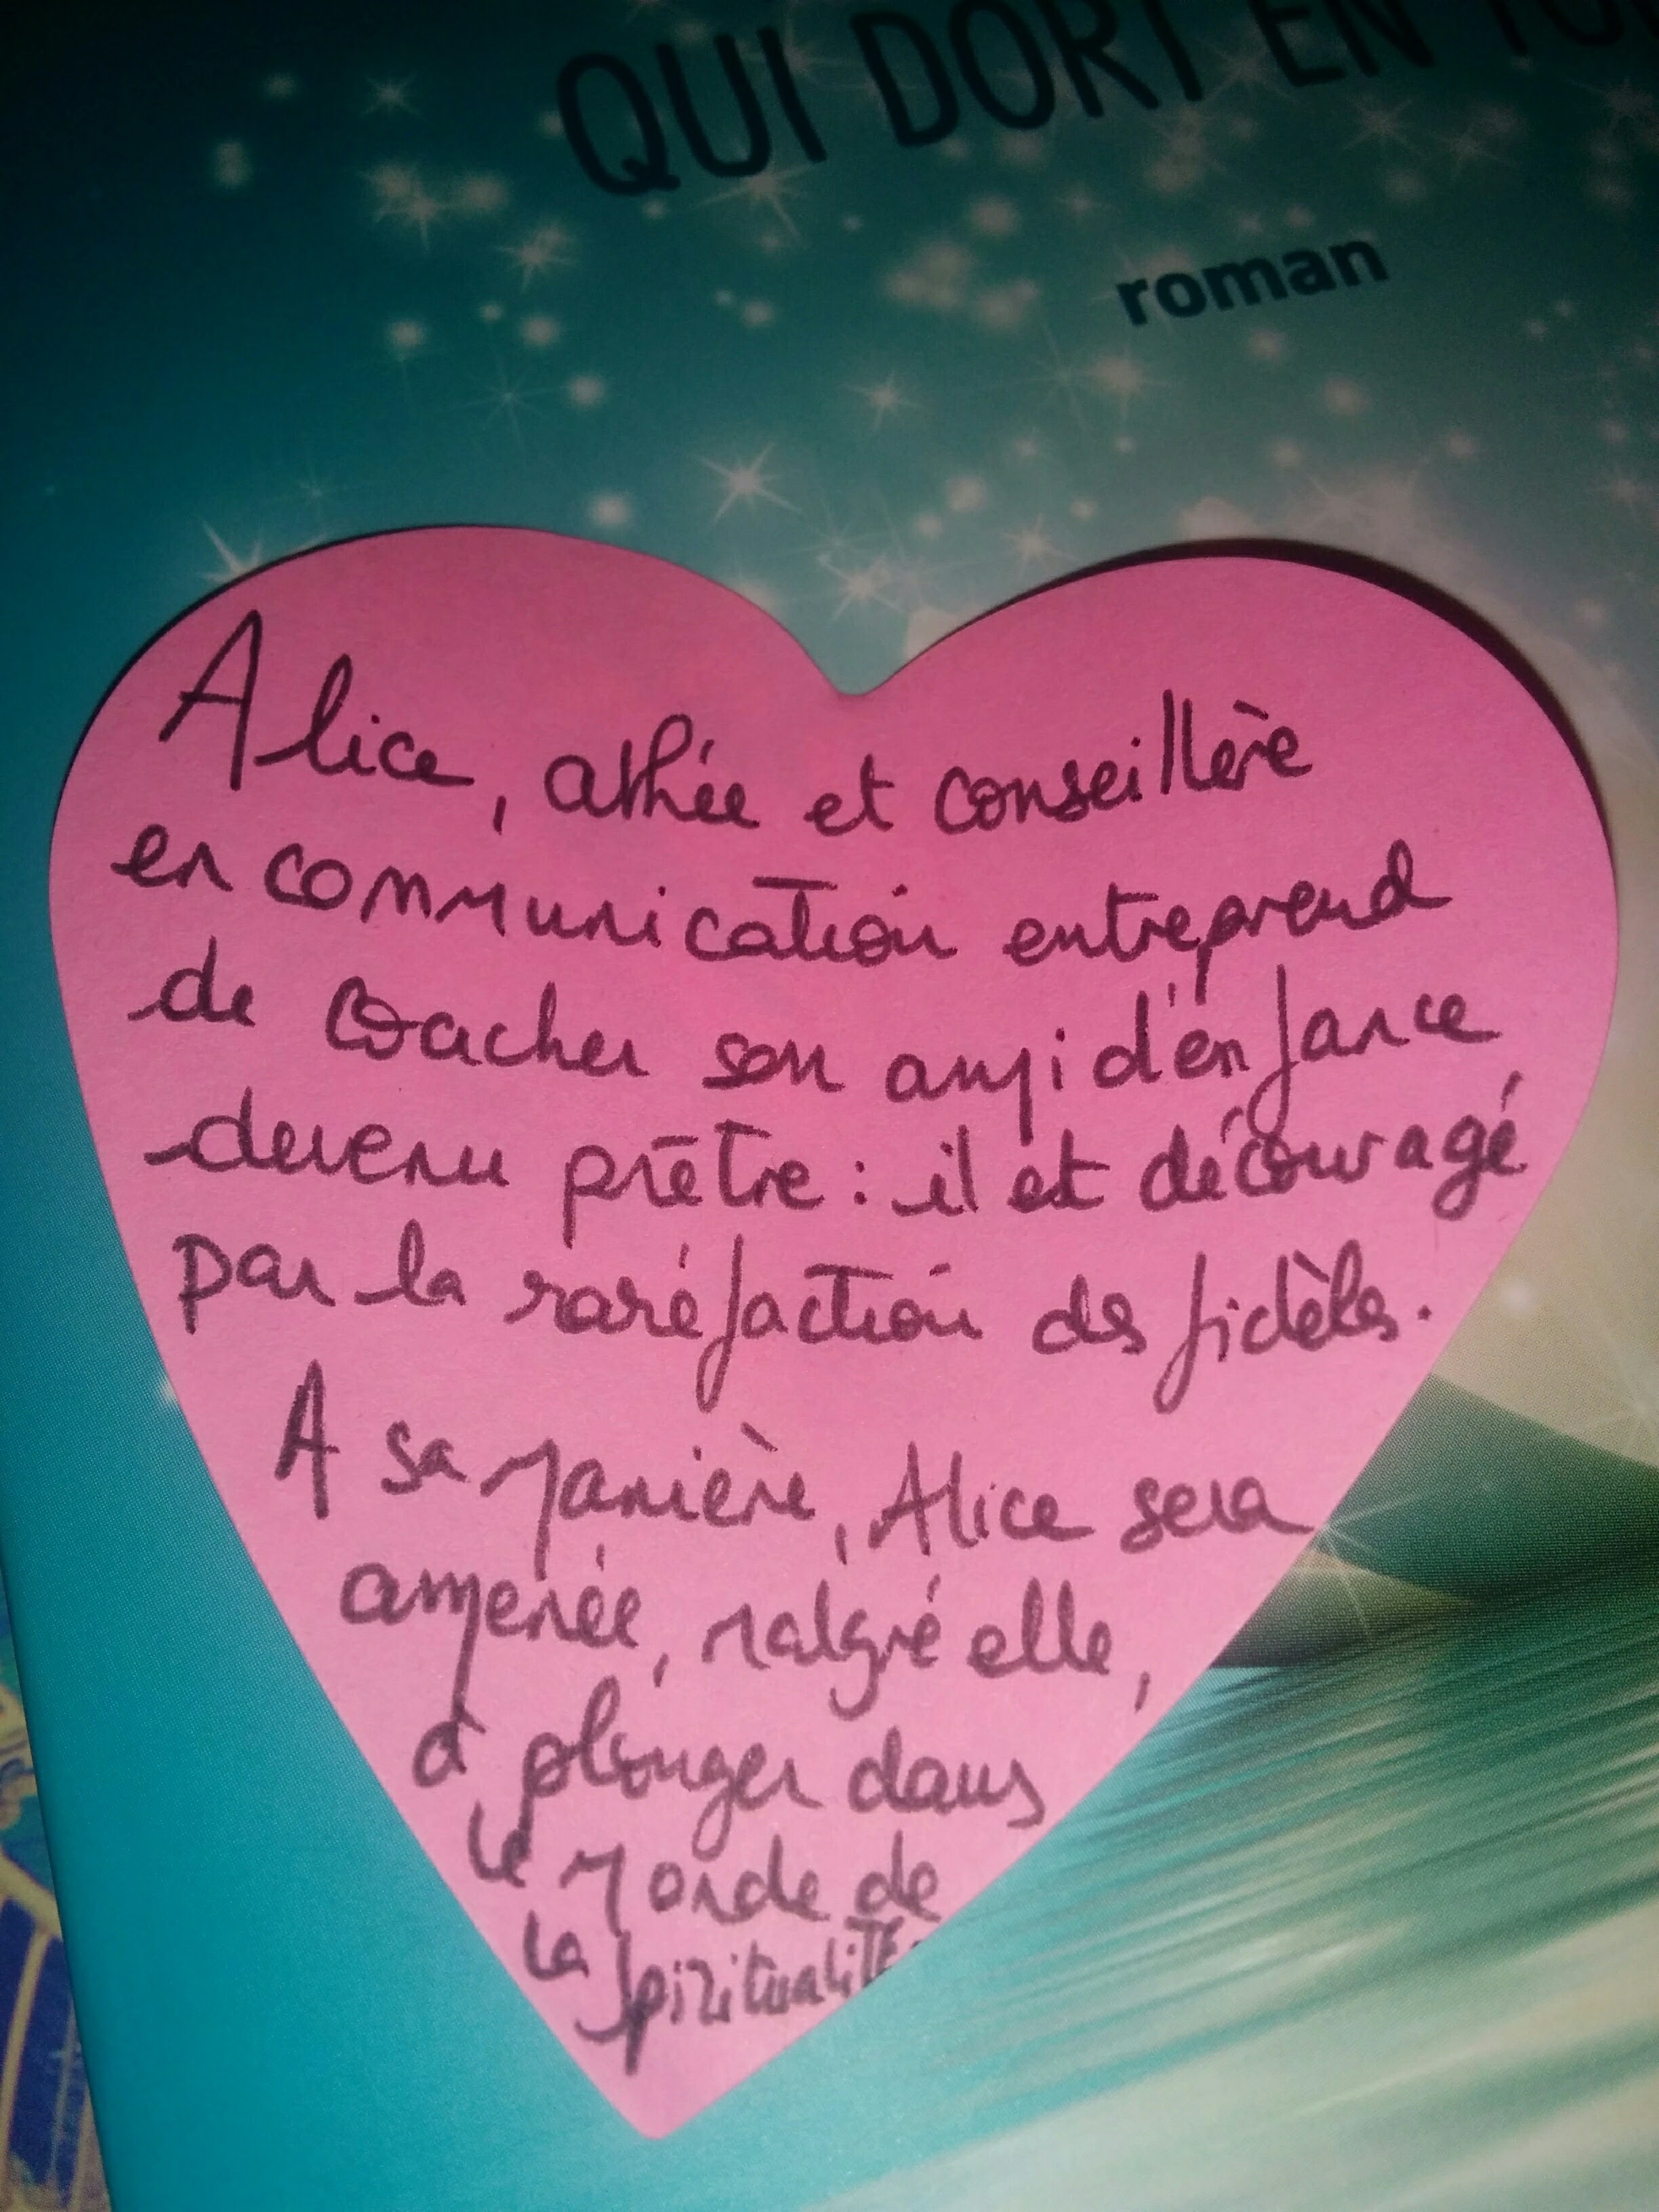 QUI DORT EN TOI
roman
Alice, athée et conseillère
en communication entreprend
de coacher son ami d'enfance,
devenu prêtre : il est découragé
par la raréfaction des fidèles.
A sa manière, Alice sera
amenée, malgré elle,
à plonger dans
le monde de
la spiritualité